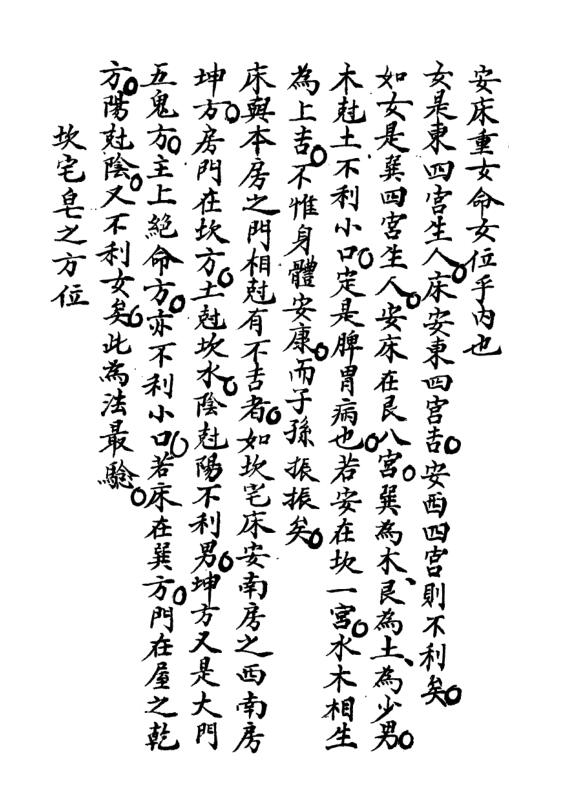 安床重女命女位乎內也
女是東四宮生人。床安東四宮吉。安西四宮則不利矣。
如女是巽四宮生人。安床在艮八宮。巽為木、艮為土、為少男。
木尅土不利小口。定是脾胃病也。若安在坎一宮。水木相生
為上吉。不惟身體安康。而子孫振振矣。
床與本房之門相尅有不吉者。如坎宅床安南房之西南房
坤方。房門在坎方。土尅坎水。陰尅陽不利男。坤方又是大門
五鬼方。主上絕命方。亦不利小口。若床在巽方。門在屋之乾
方。陽尅陰。又不利女矣。此為法最驗。
坎宅皂之方位